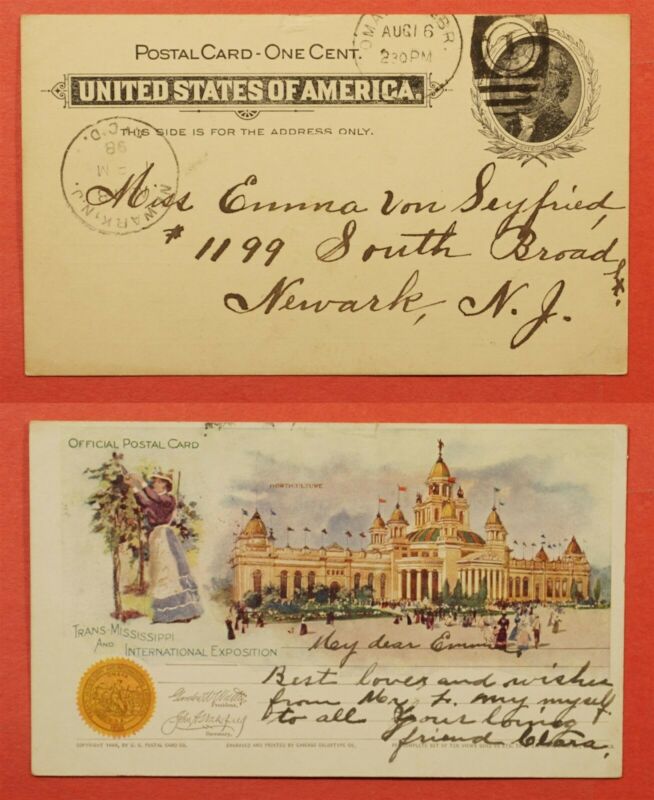 OMA BR.
AUG 16
230PM
1
POSTAL CARD - ONE CENT.
UNITED STATES OF AMERICA.
THIS SIDE IS FOR THE ADDRESS ONLY.
NEWARK N.J.
98
C.D.
Miss Emma Von Seyfried,
# 1199 South Broad
St.
Newark, N. J.
OFFICIAL POSTAL CARD
HORTICULTURE
TRANS-MISSISSIPPI
AND INTERNATIONAL EXPOSITION
My dear Emma,
Best loves and wishes
from Mr. F. my myself
to all Your loving
friend Clara.
President.
Secretary.
COPYRIGHT 1898, BY U. S. POSTAL CARD CO.
ENGRAVED AND PRINTED BY CHICAGO COLORTYPE CO.
COMPLETE SET OF TEN VIEWS